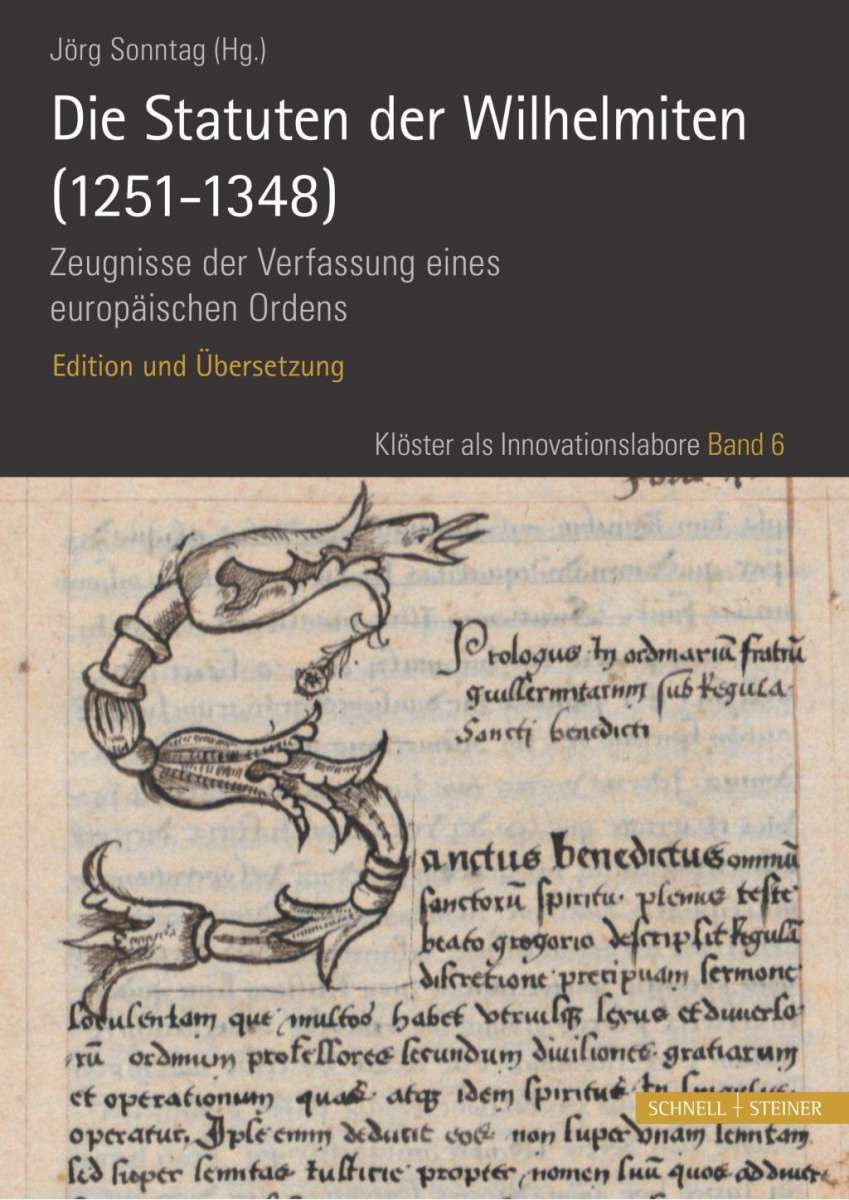 Jörg Sonntag (Hg.)
Die Statuten der Wilhelmiten
(1251–1348)
Zeugnisse der Verfassung eines
europäischen Ordens
Edition und Übersetzung
Klöster als Innovationslabore Band 6
Prologus In ordinariū fratrū
guillermitarum sub Regula
Sancti benedicti
Sanctus benedictus omniū
sanctorū spiritu plenus teste
beato gregorio descripsit Regulā
discretione precipuam sermone
loculentam que multos habet utriusqꝫ sexus et diuerso
rū ordinum professores secundum diuisiones gratiarum
et operationum quas atqꝫ idem spiritus In
operatur. Ipse enim deducit eos non super vnam semitam
sed super semitas iusticie propter nomen suū quos
SCHNELL + STEINER